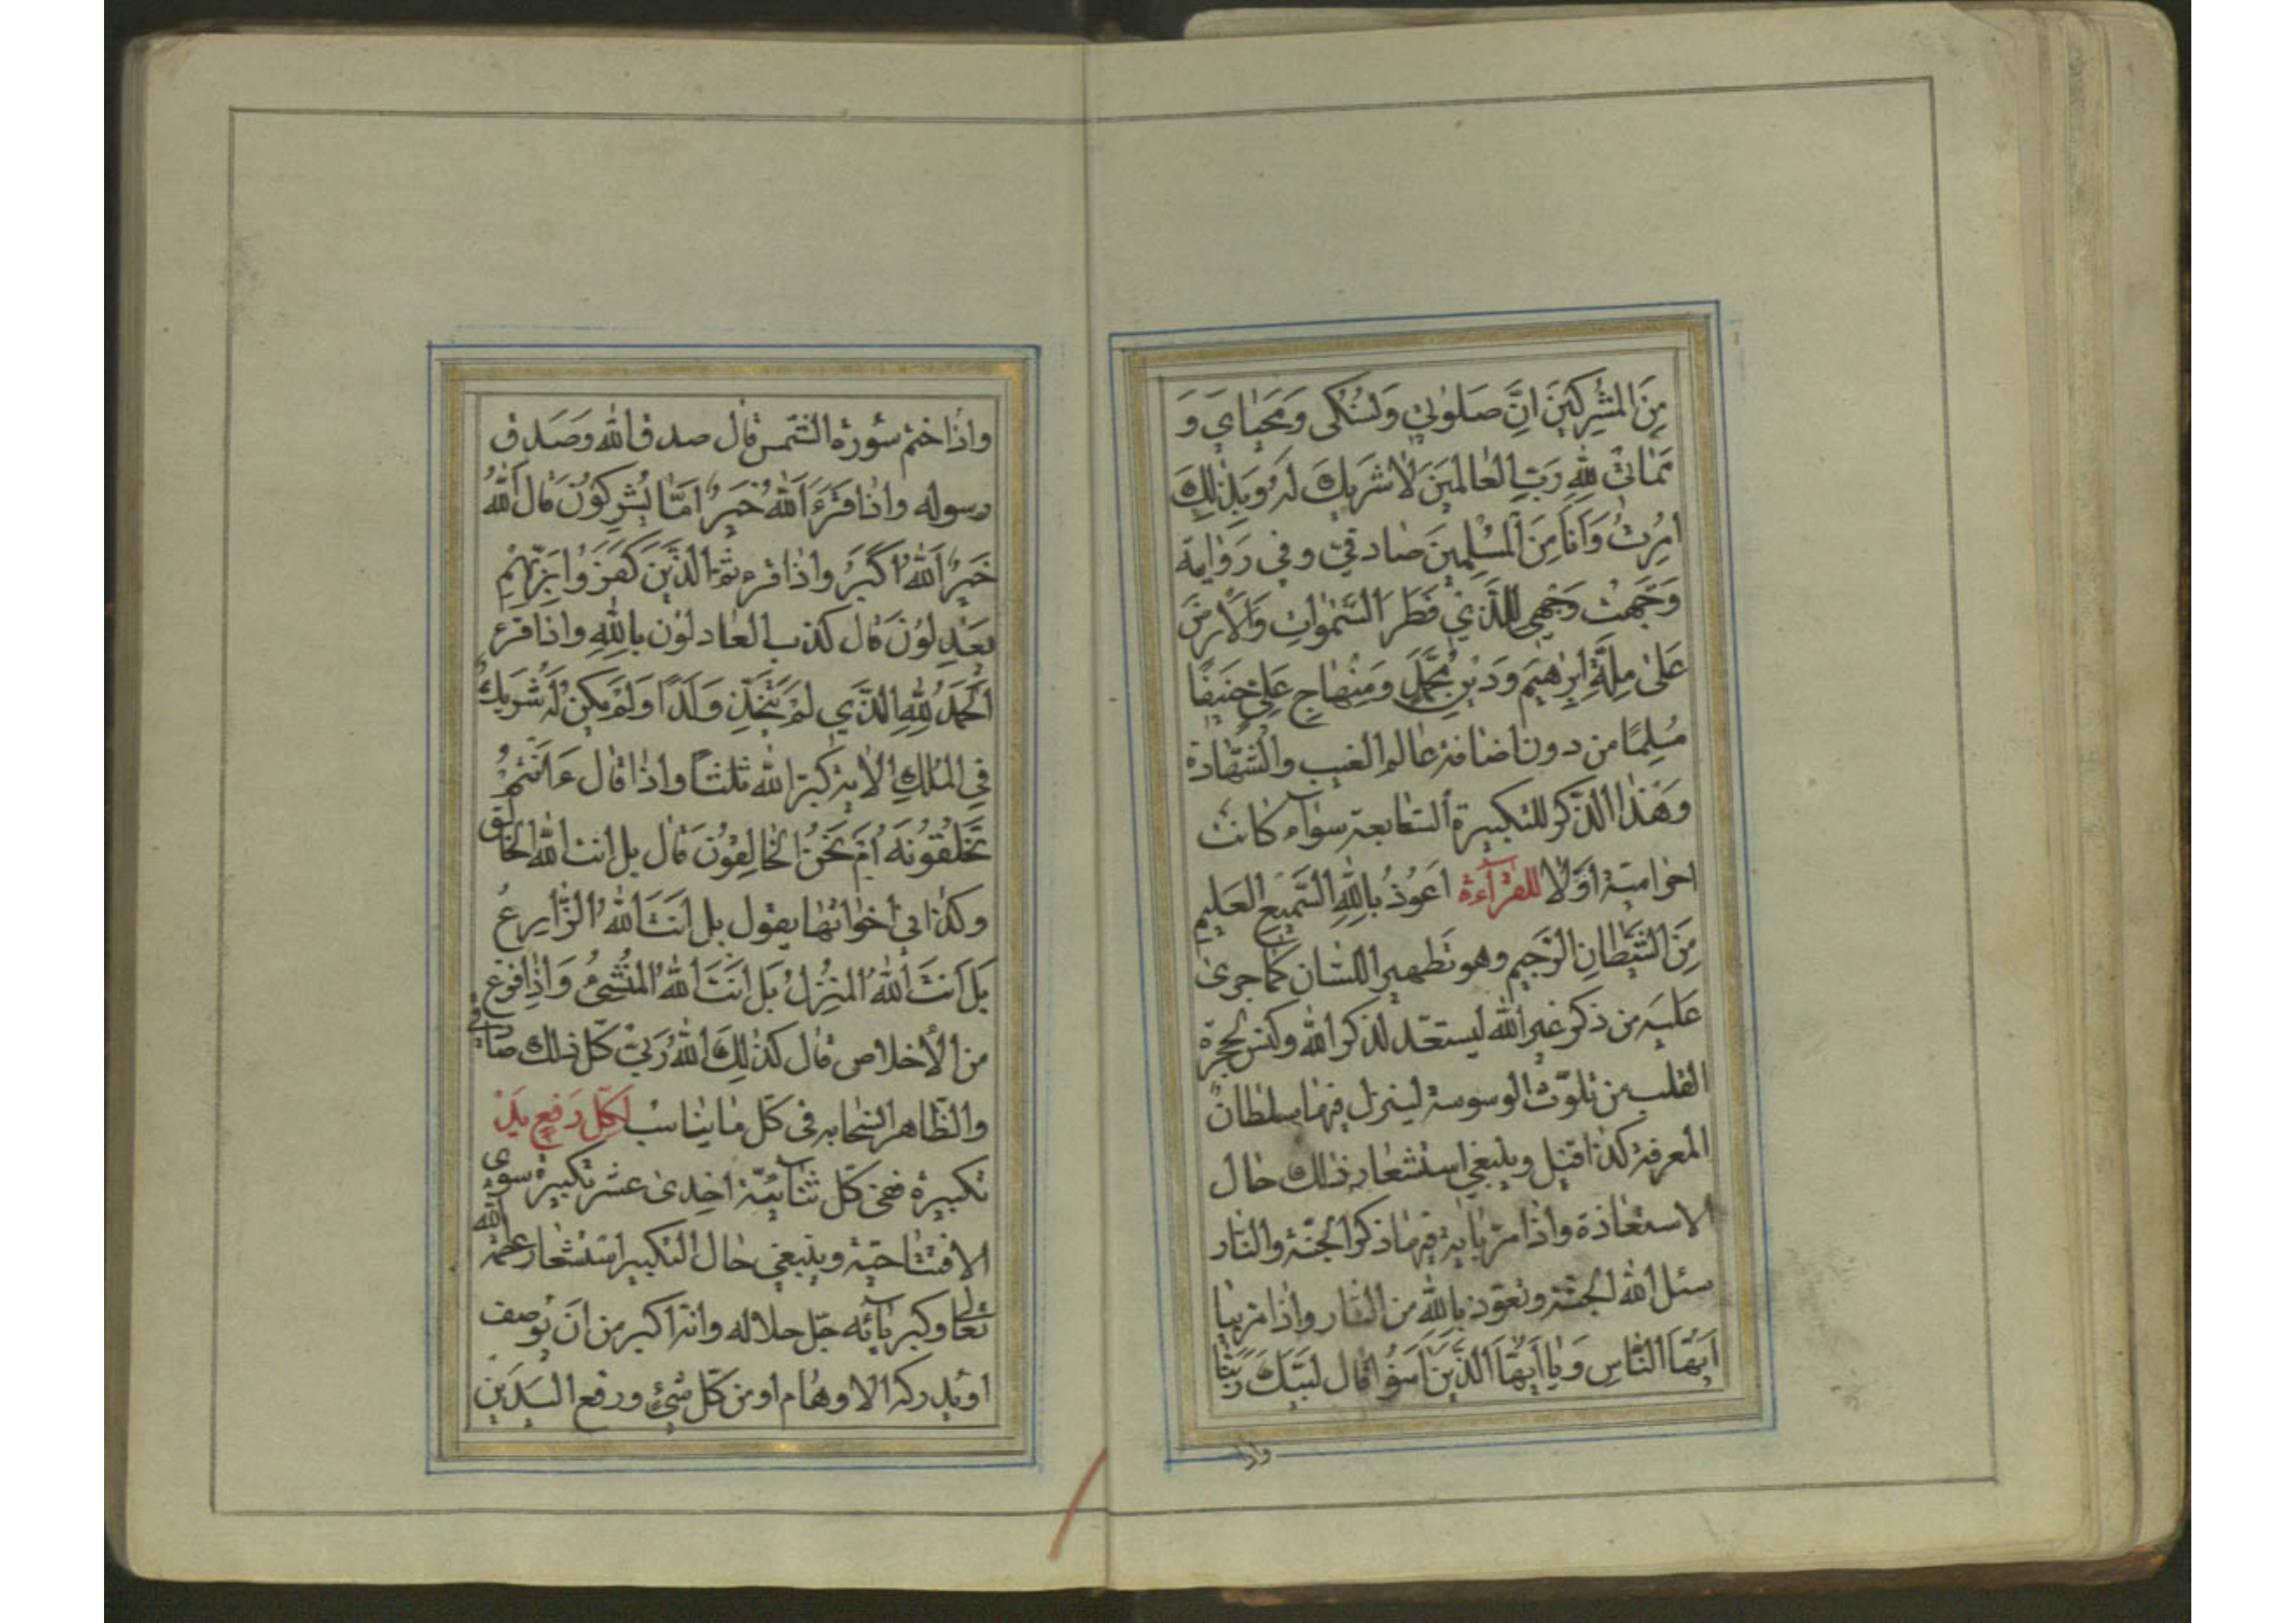 مِنَ الْمُشْرِكِينَ اِنَّ صَلوٰتِي وَنُسُكِى وَمَحْيٰايَ وَ
مَمٰاتِى لِلّٰهِ رَبِّ الْعٰالَمِينَ لٰا شَرِيكَ لَهُ وَبِذٰلِكَ
اُمِرْتُ وَاَنَا مِنَ الْمُسْلِمِينَ صٰادقيّ وفي رَوٰاية
وَجَّهْتُ وَجْهِى لِلَّذِي فَطَرَ السَّمٰوٰاتِ وَالْاَرْضَ
عَلىٰ مِلَّةِ اِبْرٰهيمَ وَدِينِ مُحَمَّدٍ وَمِنْهٰاجِ عَلِىٍّ حَنِيفًا
مُسْلِمًا من دون اضٰافة عٰالم الغيب والشّهٰادة
وهٰذا الذّكر للتكبيرة السّٰابعة سوٰاء كٰانت
احراميّة اوّلا للقرٰاءة اَعُوذُ بِاللّٰهِ السَّمِيعِ الْعَلِيمِ
مِنَ الشَّيْطٰانِ الرَّجِيمِ وهو تطهير اللّسٰان كمٰا جرى
عليَه من ذكر غير اللّٰه ليستعدّ لذكر اللّٰه وكنس حجرة
القلب من تلوّث الوسوسة لينزل فيهٰا سلطٰان
المعرفة كذٰا قيل وينبغي استشعٰار ذٰلك حٰال
الاستعٰاذة واذٰا مرّ بٰاية فيهٰا ذكر الجنّة والنّٰار
سئل اللّٰه الجنّة وتعوّذ باللّٰه من النّٰار واذٰا مرّ بيٰا
اَيُّهَا النّٰاس وَيٰا اَيُّهَا الَّذِينَ اٰمَنُوا قٰال لَبَّيْكَ رَبَّنٰا
واذا
واذٰا ختم سُورة الشّمس قٰال صدق اللّٰه وصَدق
رسوله واذٰا قَرَءَ اَللّٰهُ خَيْرٌ اَمّٰا يُشْرِكُونَ قٰال اَللّٰهُ
خَيْرٌ اَللّٰهُ اَكْبَرُ واذٰا قرء ثُمَّ الَّذِينَ كَفَرُوا بِرَبِّهِمْ
يَعْدِلُونَ قٰال كذب العٰادلون بِاللّٰهِ واذٰا قرء
اَلْحَمْدُ لِلّٰهِ الَّذِي لَمْ يَتَّخِذْ وَلَدًا وَلَمْ يَكُنْ لَهُ شَرِيكٌ
فِي الْمُلْكِ الاٰية كبّر اللّٰه ثلثًا واذٰا قٰال ءَاَنْتُمْ
تَخْلُقُونَهُ اَمْ نَحْنُ الْخٰالِقُونَ قٰال بل انت اللّٰه الخٰالق
وكذٰا فِي اخوٰاتهٰا يقول بل اَنْتَ اللّٰهُ الزّٰارِعُ
بَلْ اَنْتَ اللّٰهُ الْمُنْزِلُ بَلْ اَنْتَ اللّٰهُ الْمُنْشِئُ وَاِذٰا فرغ
من الأخلاص قٰال كذٰلِكَ اللّٰهُ رَبّى كلّ ذٰلك صٰادقي
والظّاهر انسحٰابه فى كلّ مٰا ينٰاسب لكلّ رَفع يَد
تكبيرة ففى كلّ ثنٰائيّة احدى عشر تكبيرة سوى
الافتتٰاحيّة وينبغي حٰال التكبير استشعٰار عظمة اللّٰه
تعالى وكبريٰائه جلّ جلاله وانّه اكبر من ان يُوصف
او يدركه الاوهٰام او من كلّ شئ ورفع اليَدَين